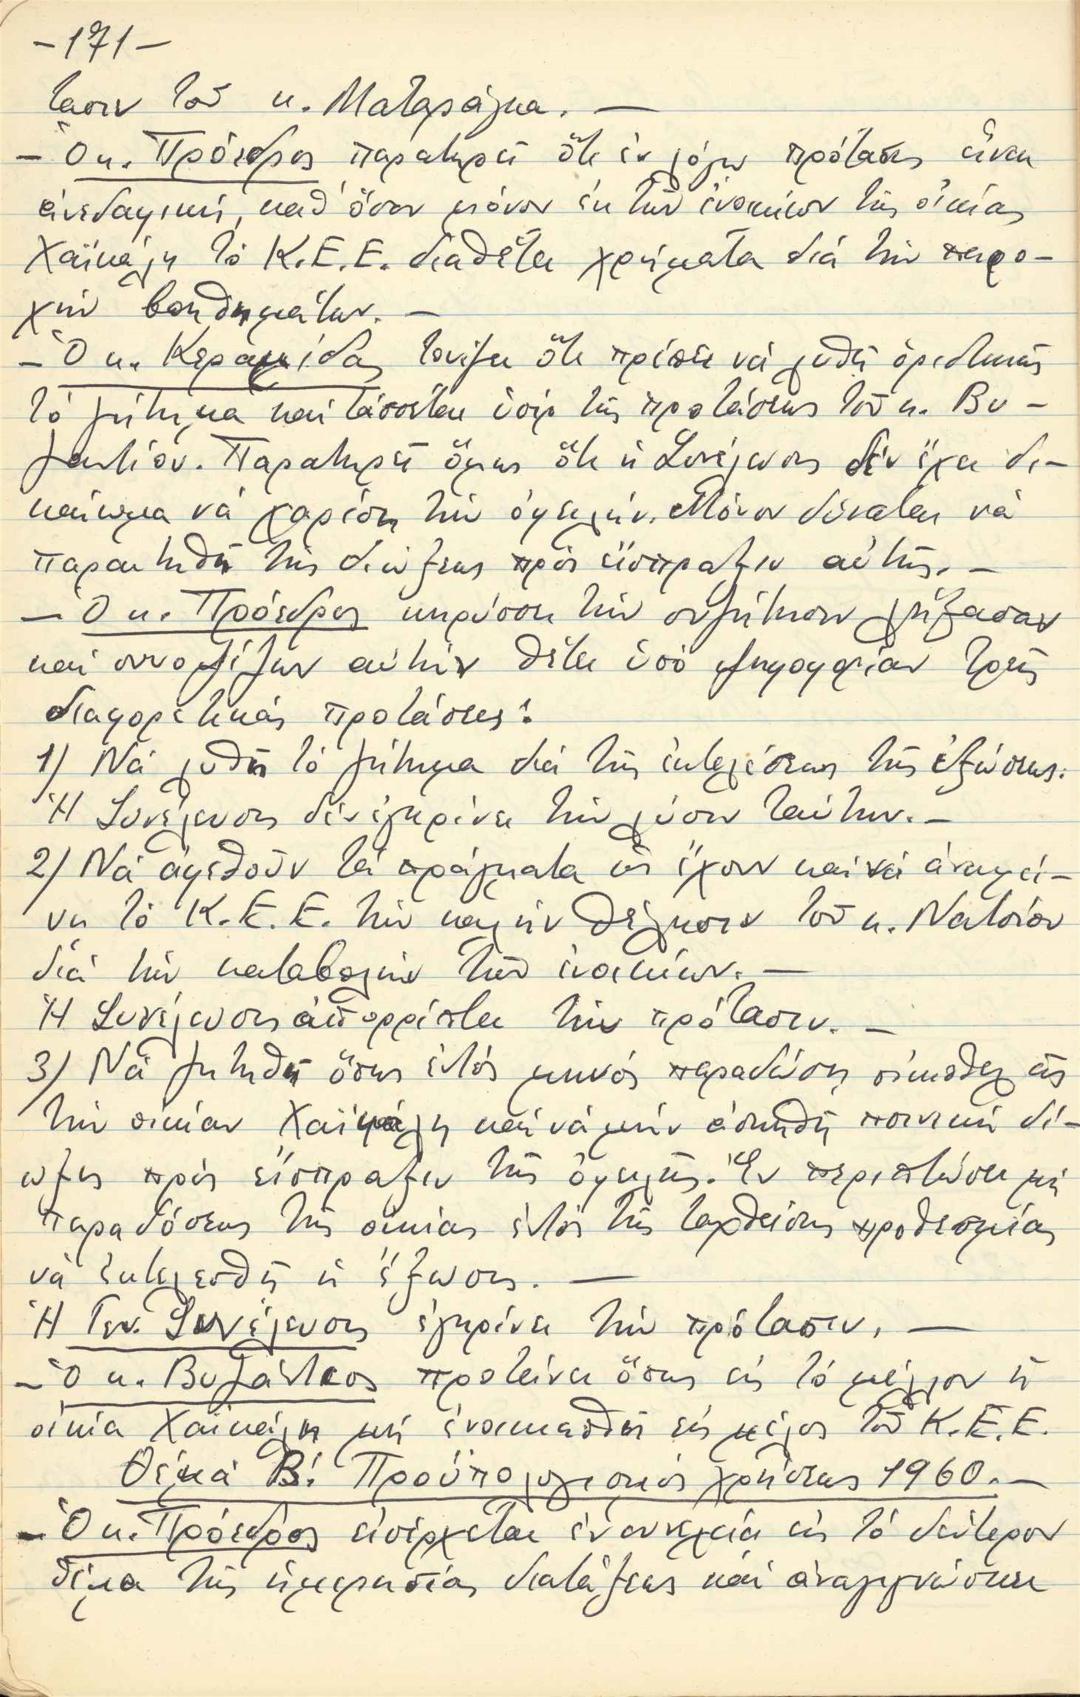 -171-
τασιν τοῦ κ. Ματαράγκα. —
- Ὁ κ. Πρόεδρος παρατηρεῖ ὅτι ἐν λόγῳ πρότασις εἶναι
ἀνεδαφική, καθ' ὅσον μόνον ἐκ τῶν ἐνοικίων τῆς οἰκίας
Χαϊκάλη τὸ Κ.Ε.Ε. διαθέτει χρήματα διὰ τὴν παρο-
χὴν βοηθημάτων. —
- Ὁ κ. Κεραμίδας τονίζει ὅτι πρέπει νὰ λυθῇ ὁριστικῶς
τὸ ζήτημα καὶ τάσσεται ὑπὲρ τῆς προτάσεως τοῦ κ. Βυ-
ζαντίου. Παρατηρεῖ ὅμως ὅτι ἡ Συνέλευσις δὲν ἔχει δι-
καίωμα νὰ χαρίσῃ τὴν ὀφειλήν. Μόνον δύναται νὰ
παραιτηθῇ τῆς διώξεως πρὸς εἴσπραξιν αὐτῆς. —
- Ὁ κ. Πρόεδρος κηρύσσει τὴν συζήτησιν λήξασαν
καὶ συνοψίζων αὐτὴν θέτει ὑπὸ ψηφοφορίαν τρεῖς
διαφορετικὰς προτάσεις:
1) Νὰ λυθῇ τὸ ζήτημα διὰ τῆς ἐκτελέσεως τῆς ἐξώσεως.
Ἡ Συνέλευσις δὲν ἐγκρίνει τὴν λύσιν ταύτην. —
2) Νὰ ἀφεθοῦν τὰ πράγματα ὡς ἔχουν καὶ νὰ ἀναμεί-
νῃ τὸ Κ.Ε.Ε. τὴν καλὴν θέλησιν τοῦ κ. Νατσίου
διὰ τὴν καταβολὴν τῶν ἐνοικίων. —
Ἡ Συνέλευσις ἀπορρίπτει τὴν πρότασιν. —
3) Νὰ ζητηθῇ ὅπως ἐντὸς μηνὸς παραδώσῃ οἰκιοθελῶς
τὴν οἰκίαν Χαϊκάλη καὶ νὰ μὴν ἀσκηθῇ ποινικὴ δί-
ωξις πρὸς εἴσπραξιν τῆς ὀφειλῆς. Ἐν περιπτώσει μὴ
παραδόσεως τῆς οἰκίας ἐντὸς τῆς ταχθείσης προθεσμίας
νὰ ἐκτελεσθῇ ἡ ἔξωσις. —
Ἡ Γεν. Συνέλευσις ἐγκρίνει τὴν πρότασιν. —
- Ὁ κ. Βυζάντιος προτείνει ὅπως εἰς τὸ μέλλον ἡ
οἰκία Χαϊκάλη μὴ ἐνοικιασθῇ εἰς μέλος τοῦ Κ.Ε.Ε.
Θέμα Β': Προϋπολογισμὸς χρήσεως 1960. —
- Ὁ κ. Πρόεδρος εἰσέρχεται ἐν συνεχείᾳ εἰς τὸ δεύτερον
θέμα τῆς ἡμερησίας διατάξεως καὶ ἀναγιγνώσκει